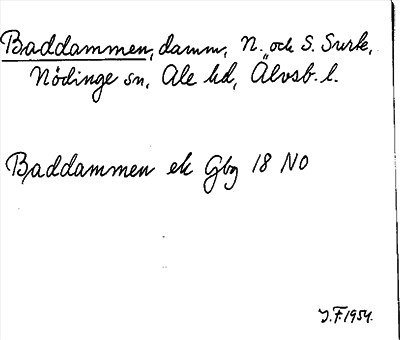 Baddammen, damm, N. och S. Surte,
Nödinge sn, Ale hd, Älvsb. l.
Baddammen ek Gbg 18 NO
J.F. 1954.